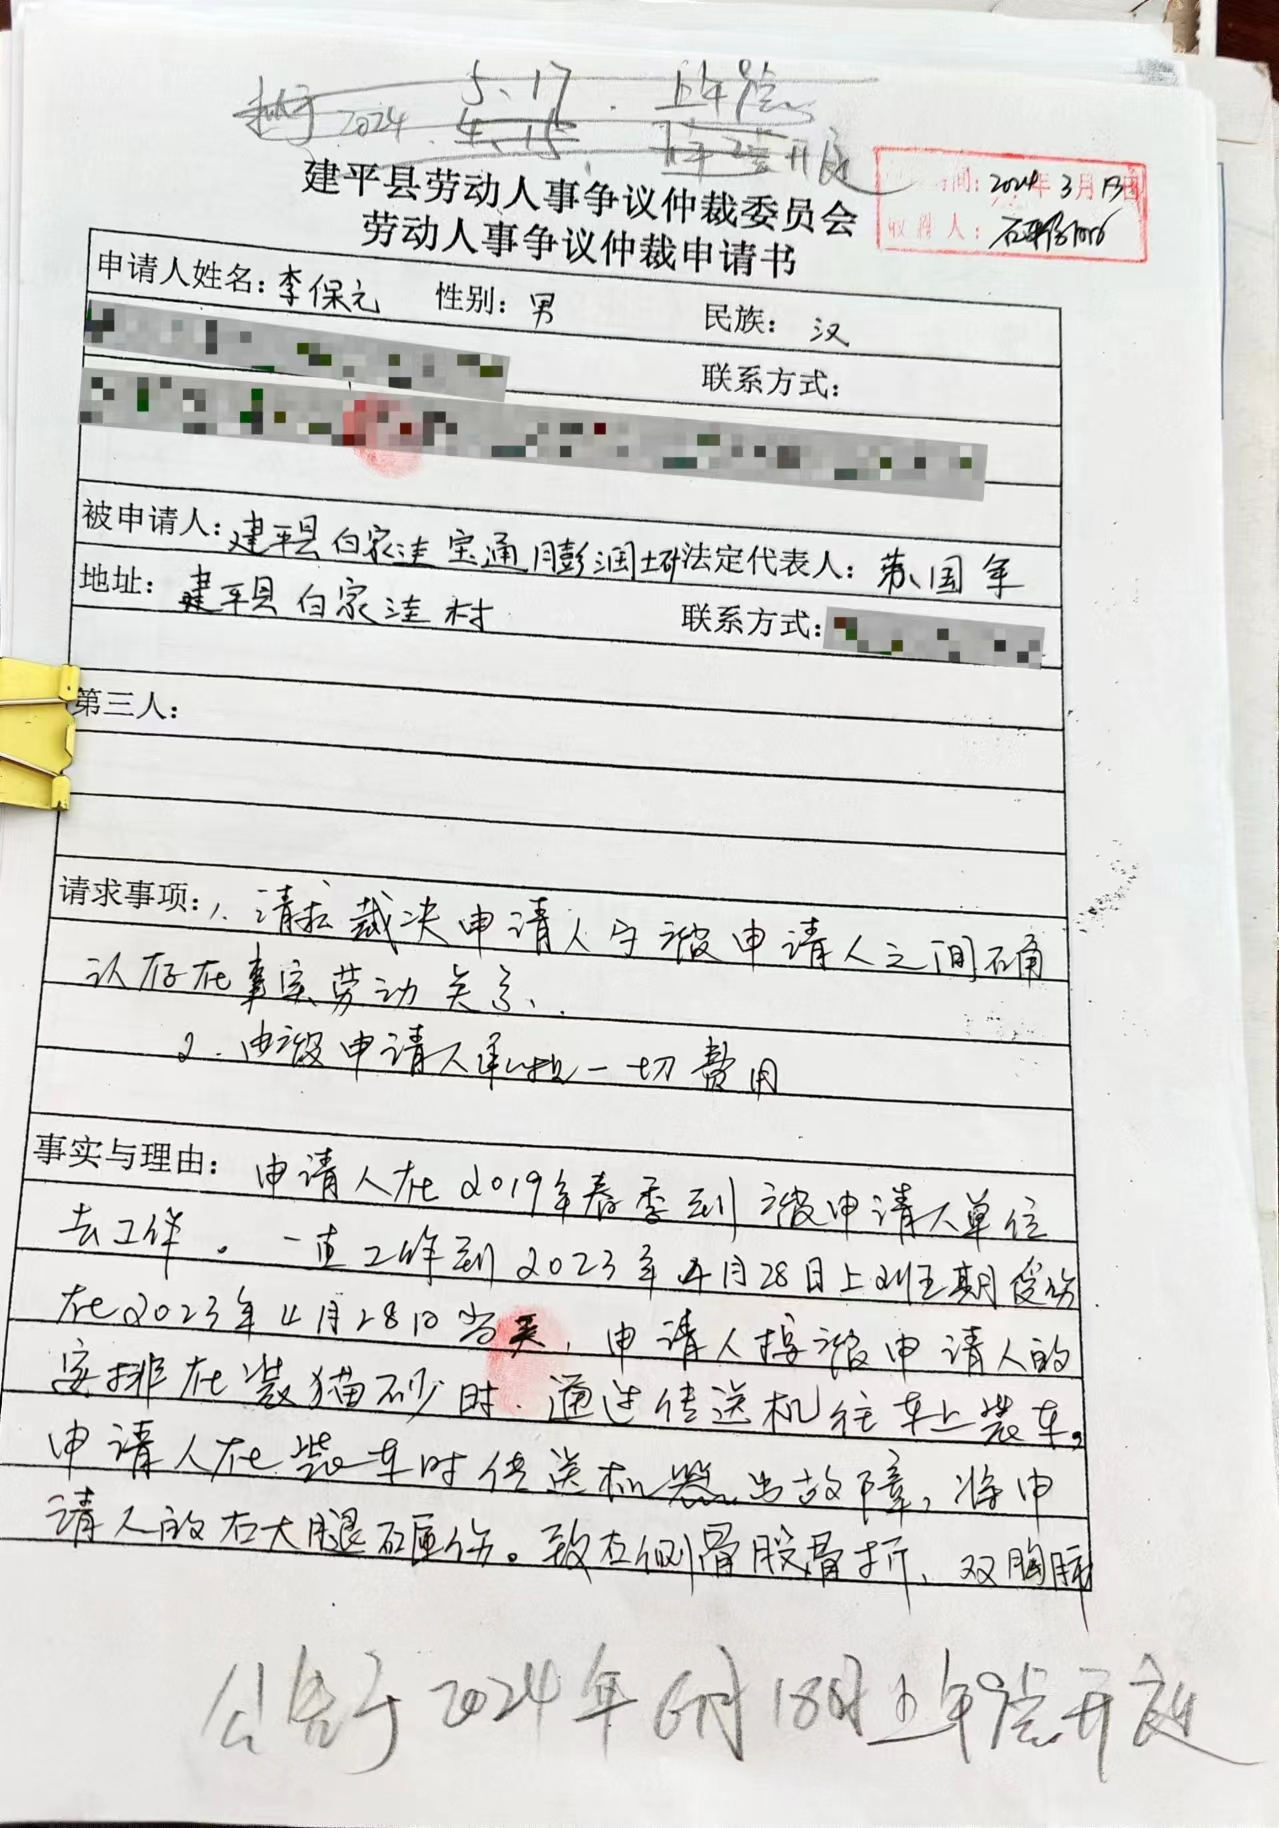 5.17 上午9点
2024. 4.15 开庭
建平县劳动人事争议仲裁委员会
劳动人事争议仲裁申请书
间: 2024年3月13日
收件人:
申请人姓名: 李保元 性别: 男 民族: 汉
联系方式:
被申请人: 建平县白家洼宝通膨润土矿 法定代表人: 苏国军
地址: 建平县白家洼村 联系方式:
第三人:
请求事项: 1. 请求裁决申请人与被申请人之间确
认存在事实劳动关系.
2. 由被申请人承担一切费用
事实与理由: 申请人在2019年春季到被申请人单位
去工作。一直工作到2023年4月28日上班至期受伤
在2023年4月28日当天,申请人按被申请人的
安排在装猫砂时.通过传送机往车上装车。
申请人在装车时传送机器出故障,将申
请人的右大腿砸伤。致右侧骨股骨折、双胸腔
公告于2024年6月18日上午9点开庭